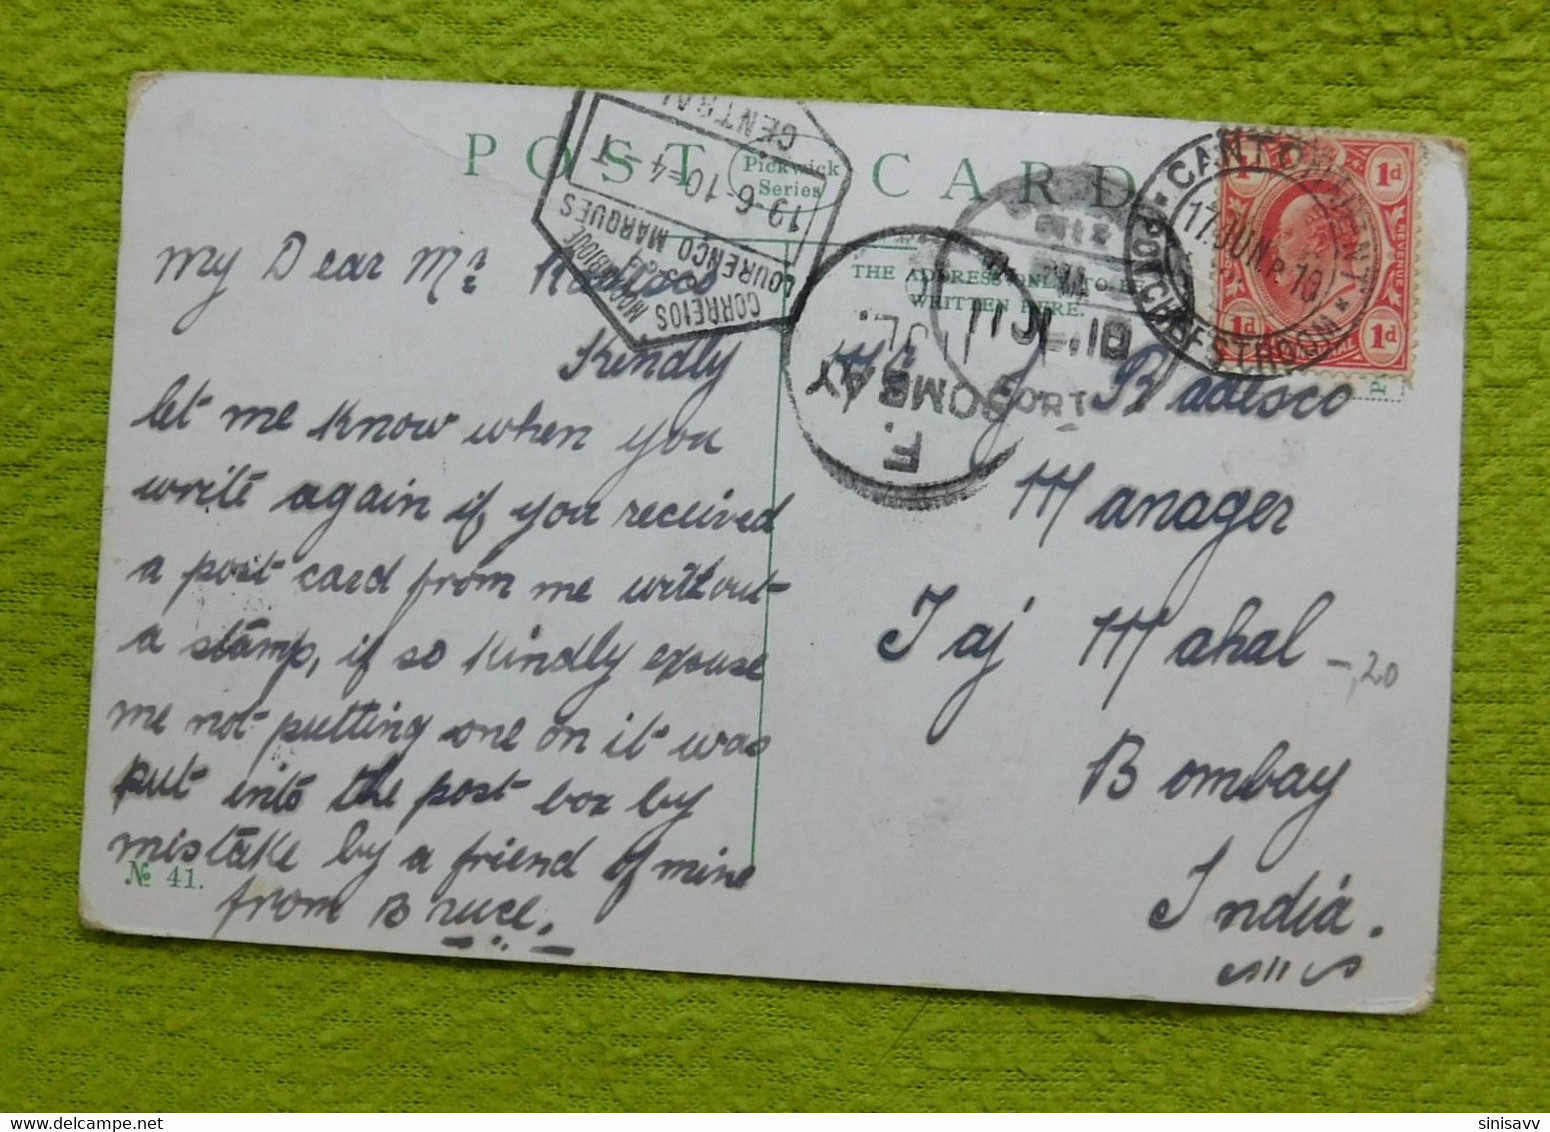 POST CARD
Pickwick
Series
THE ADDRESS ONLY TO BE
WRITTEN HERE.
CANTONMENTS
POTCHEFSTROOM
17 JUN 10
1d 1d
1d 1d
CENTRAL
19-6-10=4-T
LOURENCO MARQUES
CORREIOS
F. BOMBAY
JL.
My Dear Mr
Kindly
let me know when you
write again if you received
a post card from me without
a stamp, if so kindly excuse
me not putting one on it was
put into the post box by
mistake by a friend of mine
from Bruce.
Mr J. Badesco
Manager
Taj Mahal
-,20
Bombay
India.
№ 41.
sinisavv